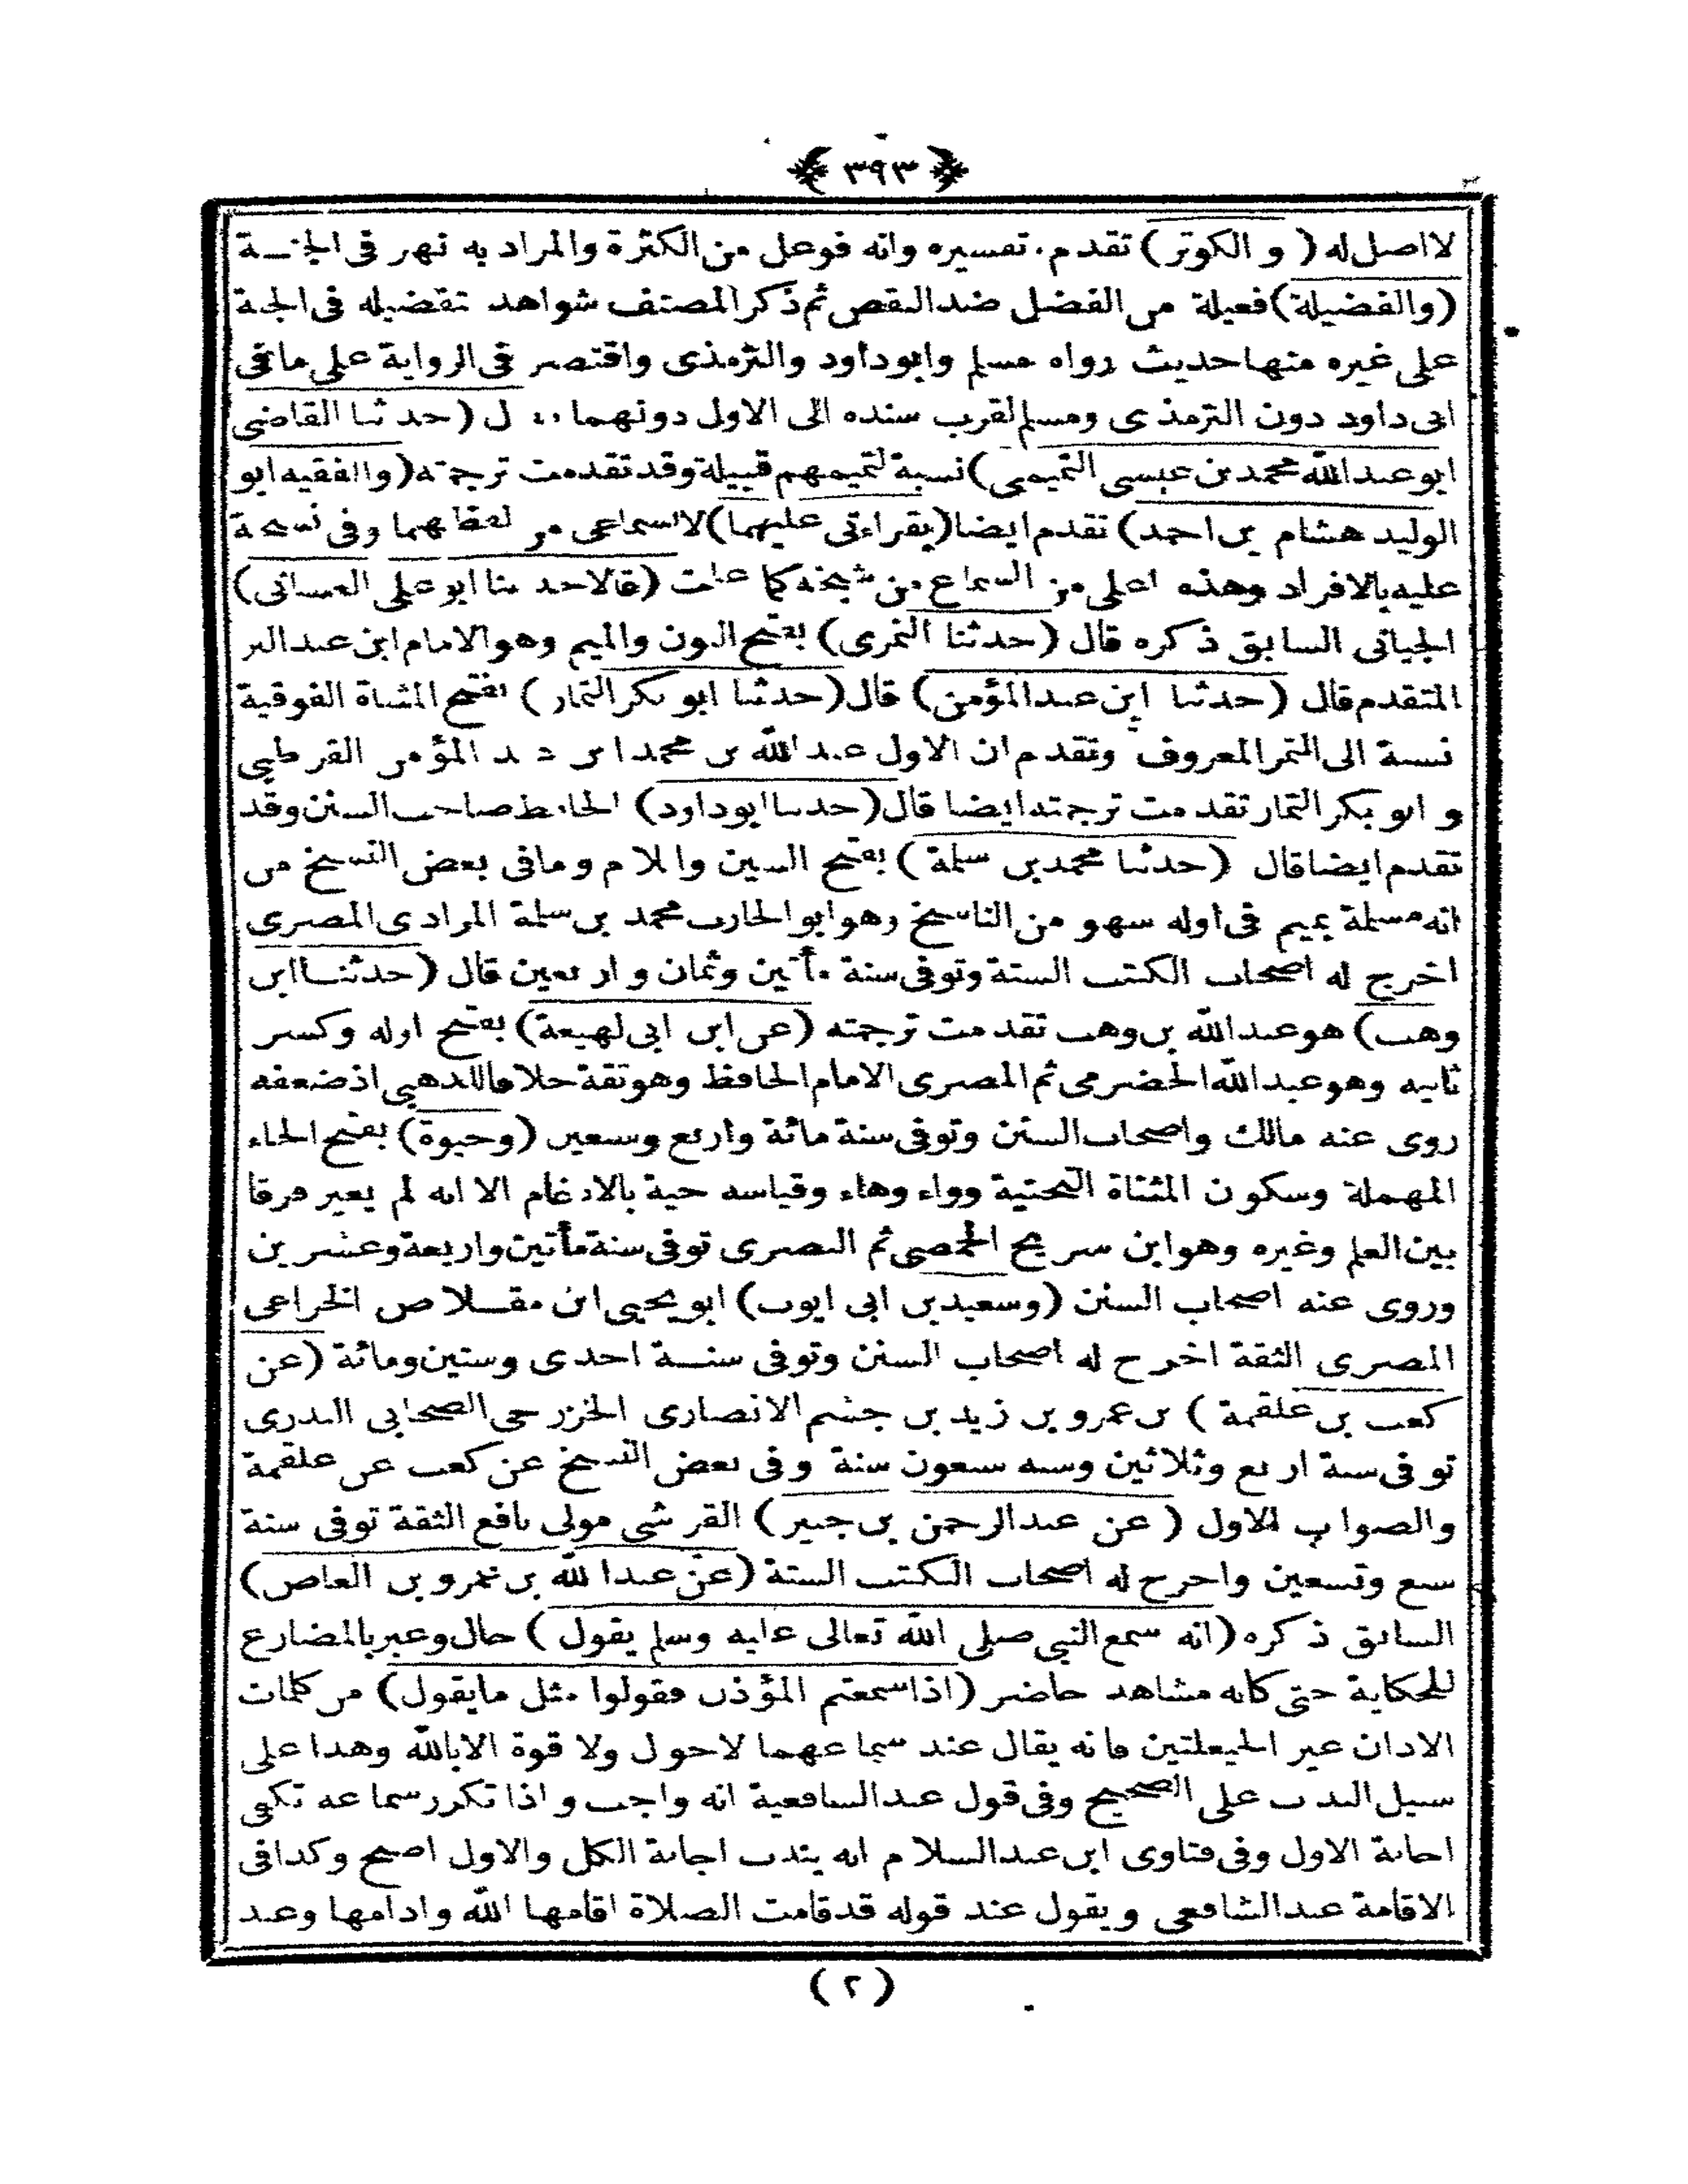 ﴿ ٣٩٣ ﴾
لااصل له (والكوثر) تقدم تفسيره وانه فوعل من الكثرة والمراد به نهر فى الجنـة
(والفضيلة) فعيلة من الفضل ضد النقص ثم ذكر المصنف شواهد تفضيله فى الجنة
على غيره منها حديث رواه مسلم وابوداود والترمذى واقتصر فى الرواية على مافى
ابى داود دون الترمذى ومسلم لقرب سنده الى الاول دونهما (حدثنا القاضى
ابوعبدالله محمد بن عيسى التميمى) نسبة لتميم قبيلة وقد تقدمت ترجمته (والفقيه ابو
الوليد هشام بن احمد) تقدم ايضا (بقراءتى عليهما) لابسماعى من لفظهما وفى نسخة
عليه بالافراد وهذه اعلى من السماع من شيخه كما علمت (قالاحدثنا ابوعلى الغسانى)
الجيانى السابق ذكره قال (حدثنا النمرى) بفتح النون والميم وهو الامام ابن عبدالبر
المتقدم قال (حدثنا ابن عبدالمؤمن) قال (حدثنا ابو بكر التمار) بفتح المثناة الفوقية
نسبة الى التمر المعروف وتقدم ان الاول عبدالله بن محمد ابن عبد المؤمن القرطبى
و ابو بكر التمار تقدمت ترجمته ايضا قال (حدثنا ابوداود) الحافظ صاحب السنن وقد
تقدم ايضا قال (حدثنا محمد بن سلمة) بفتح السين واللام ومافى بعض النسخ من
انه مسلمة بميم فى اوله سهو من الناسخ وهو ابو الحارث محمد بن سلمة المرادى المصرى
اخرج له اصحاب الكتب الستة وتوفى سنة مأتين وثمان واربعين قال (حدثنا ابن
وهب) هو عبدالله بن وهب تقدمت ترجمته (عن ابن ابى لهيعة) بفتح اوله وكسر
ثانيه وهو عبدالله الحضرمى ثم المصرى الامام الحافظ وهو ثقة خلافا للذهبى اذ ضعفه
روى عنه مالك واصحاب السنن وتوفى سنة مائة واربع وسبعين (وحيوة) بفتح الحاء
المهملة وسكون المثناة التحتية وواو وهاء وقياسه حية بالادغام الا انه لم يغير فرقا
بين العلم وغيره وهو ابن سريح الحمصى ثم البصرى توفى سنة مأتين واربعة وعشرين
وروى عنه اصحاب السنن (وسعيد بن ابى ايوب) ابو يحيى ابن مقـلاص الخزاعى
المصرى الثقة اخرج له اصحاب السنن وتوفى سنـة احدى وستين ومائة (عن
كعب بن علقمة) بن عمرو بن زيد بن جشم الانصارى الخزرجى الصحابى البدرى
توفى سنة اربع وثلاثين وسنه سبعون سنة وفى بعض النسخ عن كعب عن علقمة
والصواب الاول (عن عبدالرحمن بن جبير) القرشى مولى نافع الثقة توفى سنة
سبع وتسعين واخرج له اصحاب الكتب الستة (عن عبدالله بن عمرو بن العاص)
السابق ذكره (انه سمع النبى صلى الله تعالى عليه وسلم يقول) حال وعبر بالمضارع
للحكاية حتى كانه مشاهد حاضر (اذا سمعتم المؤذن فقولوا مثل مايقول) من كلمات
الاذان غير الحيعلتين فانه يقال عند سماعهما لاحول ولا قوة الابالله وهذا على
سبيل الندب على الصحيح وفى قول عند الشافعية انه واجب و اذا تكرر سماعه تكفى
اجابة الاول وفى فتاوى ابن عبدالسلام انه يندب اجابة الكل والاول اصح وكذا فى
الاقامة عند الشافعى ويقول عند قوله قدقامت الصلاة اقامها الله وادامها وعند
(٢)